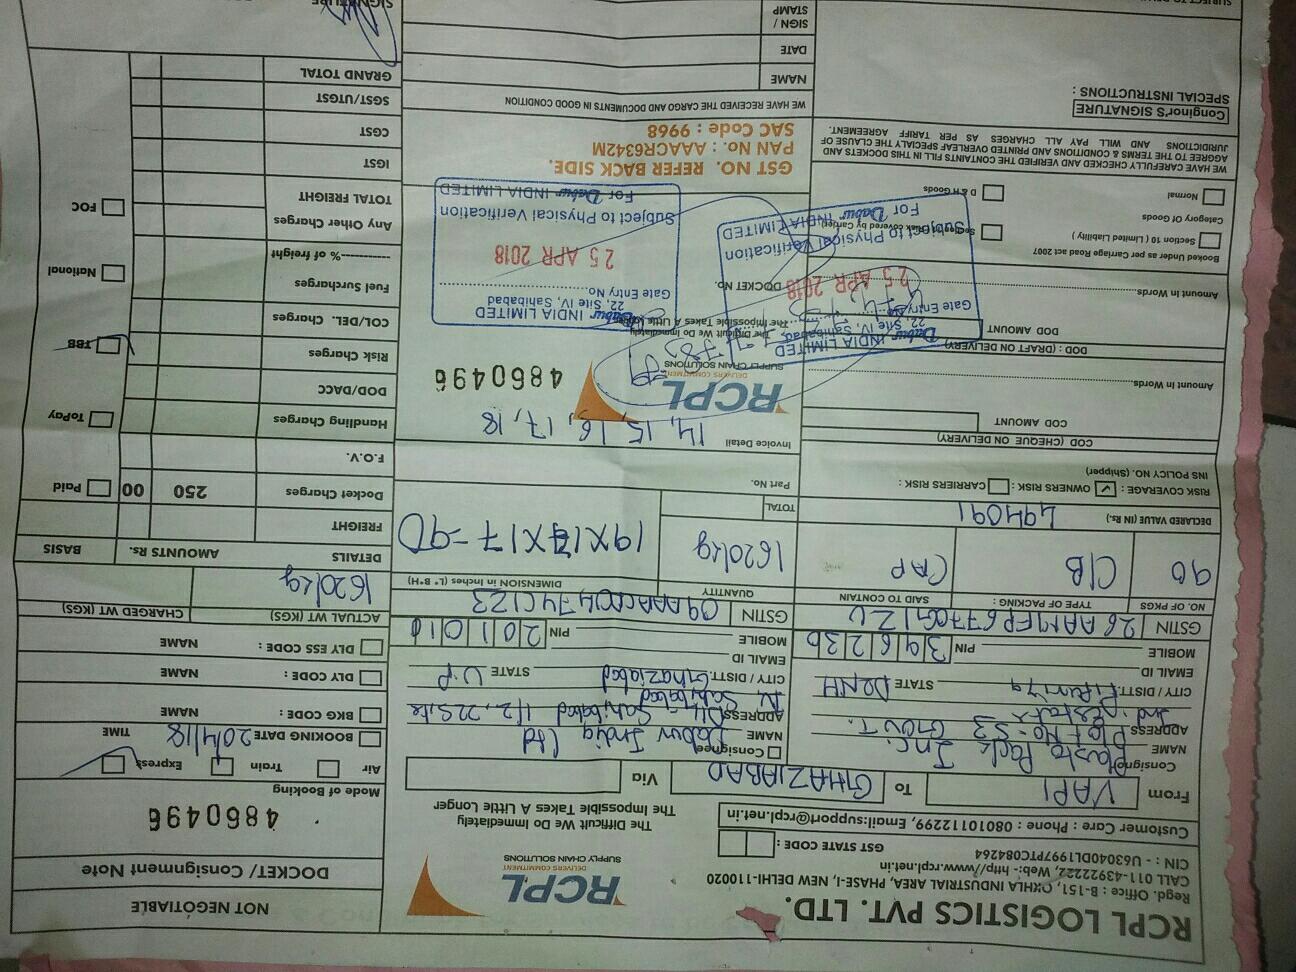 RCPL LOGISTICS PVT. LTD.
Regd. Office : B-151, OKHLA INDUSTRIAL AREA, PHASE-I, NEW DELHI-110020
CALL 011-43922222, Web:- http//www.rcpl.net.in
CIN : - U63040DL1997PTC084264
GST STATE CODE :
Customer Care : Phone : 08010112299, Email:support@rcpl.net.in
RCPL
DELIVERS COMMITMENT
SUPPLY CHAIN SOLUTIONS
The Difficult We Do Immediately
The Impossible Takes A Little Longer
NOT NEGOTIABLE
DOCKET/ Consignment Note
4860496
Mode of Booking
Air Train Express
BOOKING DATE 20/4/18 TIME
BKG CODE : NAME
DLY CODE : NAME
DLY ESS CODE : NAME
ACTUAL WT (KGS) CHARGED WT (KGS)
1620kg
From VAPI To GHAZIABAD Via
Consignor
NAME Plasto Pack Inc.
ADDRESS Plot No-53 GOVT.
Ind. Estate
CITY / DISTT. Piperiya STATE DRNH
EMAIL ID
MOBILE PIN 396230
GSTIN 26AAMFP6770G1ZU
Consignee
NAME Dabur India Ltd
ADDRESS Sahibabad 1/2, 22 Site
IV Sahibabad
CITY / DISTT. Ghaziabad STATE U.P
EMAIL ID
MOBILE PIN 201010
GSTIN 09AAACD0474C1Z3
NO. OF PKGS TYPE OF PACKING : SAID TO CONTAIN QUANTITY DIMENSION in Inches (L* B*H)
90 C/B CAP 1620kg 19X14X17=90
TOTAL
DECLARED VALUE (IN Rs.) 494091
RISK COVERAGE : OWNERS RISK : CARRIERS RISK :
INS POLICY NO. (Shipper)
Part No.
COD (CHEQUE ON DELIVERY)
COD AMOUNT
Amount In Words
DOD : (DRAFT ON DELIVERY)
DOD AMOUNT
Amount In Words
Booked as per Under Carriage Road act 2007
Section 10 ( Limited Liability )
Category Of Goods
Normal D & H Goods
WE HAVE CAREFULLY CHECKED AND VERIFIED THE CONTAINTS FILL IN THIS DOCKETS AND
AGGREE TO THE TERMS & CONDITIONS AND PRINTED OVERLEAF SPECIALY THE CLAUSE OF
JURIDICTIONS AND WILL PAY ALL CHARGES AS PER TARIFF AGREEMENT.
Conginor'S SIGNATURE
SPECIAL INSTRUCTIONS :
Invoice Detail
14, 15, 16, 17, 18
RCPL
DELIVERS COMMITMENT
SUPPLY CHAIN SOLUTIONS
4860496
The Difficult We Do Immediately
The Impossible Takes A Little
DOCKET NO.
Dabur INDIA LIMITED
22, Site IV, Sahibabad
Gate Entry
25 APR 2018
Subject to Physical Verification
For Dabur INDIA LIMITED
Dabur INDIA LIMITED
22, Site IV, Sahibabad
Gate Entry No.
25 APR 2018
Subject to Physical Verification
For Dabur INDIA LIMITED
GST NO. REFER BACK SIDE.
PAN No. : AAACR6342M
SAC Code : 9968
WE HAVE RECEIVED THE CARGO AND DOCUMENTS IN GOOD CONDITION
NAME
DATE
SIGN /
STAMP
DETAILS AMOUNTS Rs. BASIS
FREIGHT
Docket Charges 250 00 Paid
F.O.V.
Handling Charges ToPay
DOD/DACC
Risk Charges TBB
COL/DEL. Charges
Fuel Surcharges National
% of freight
Any Other Charges FOC
TOTAL FREIGHT
IGST
CGST
SGST/UTGST
GRAND TOTAL
SIGNATURE